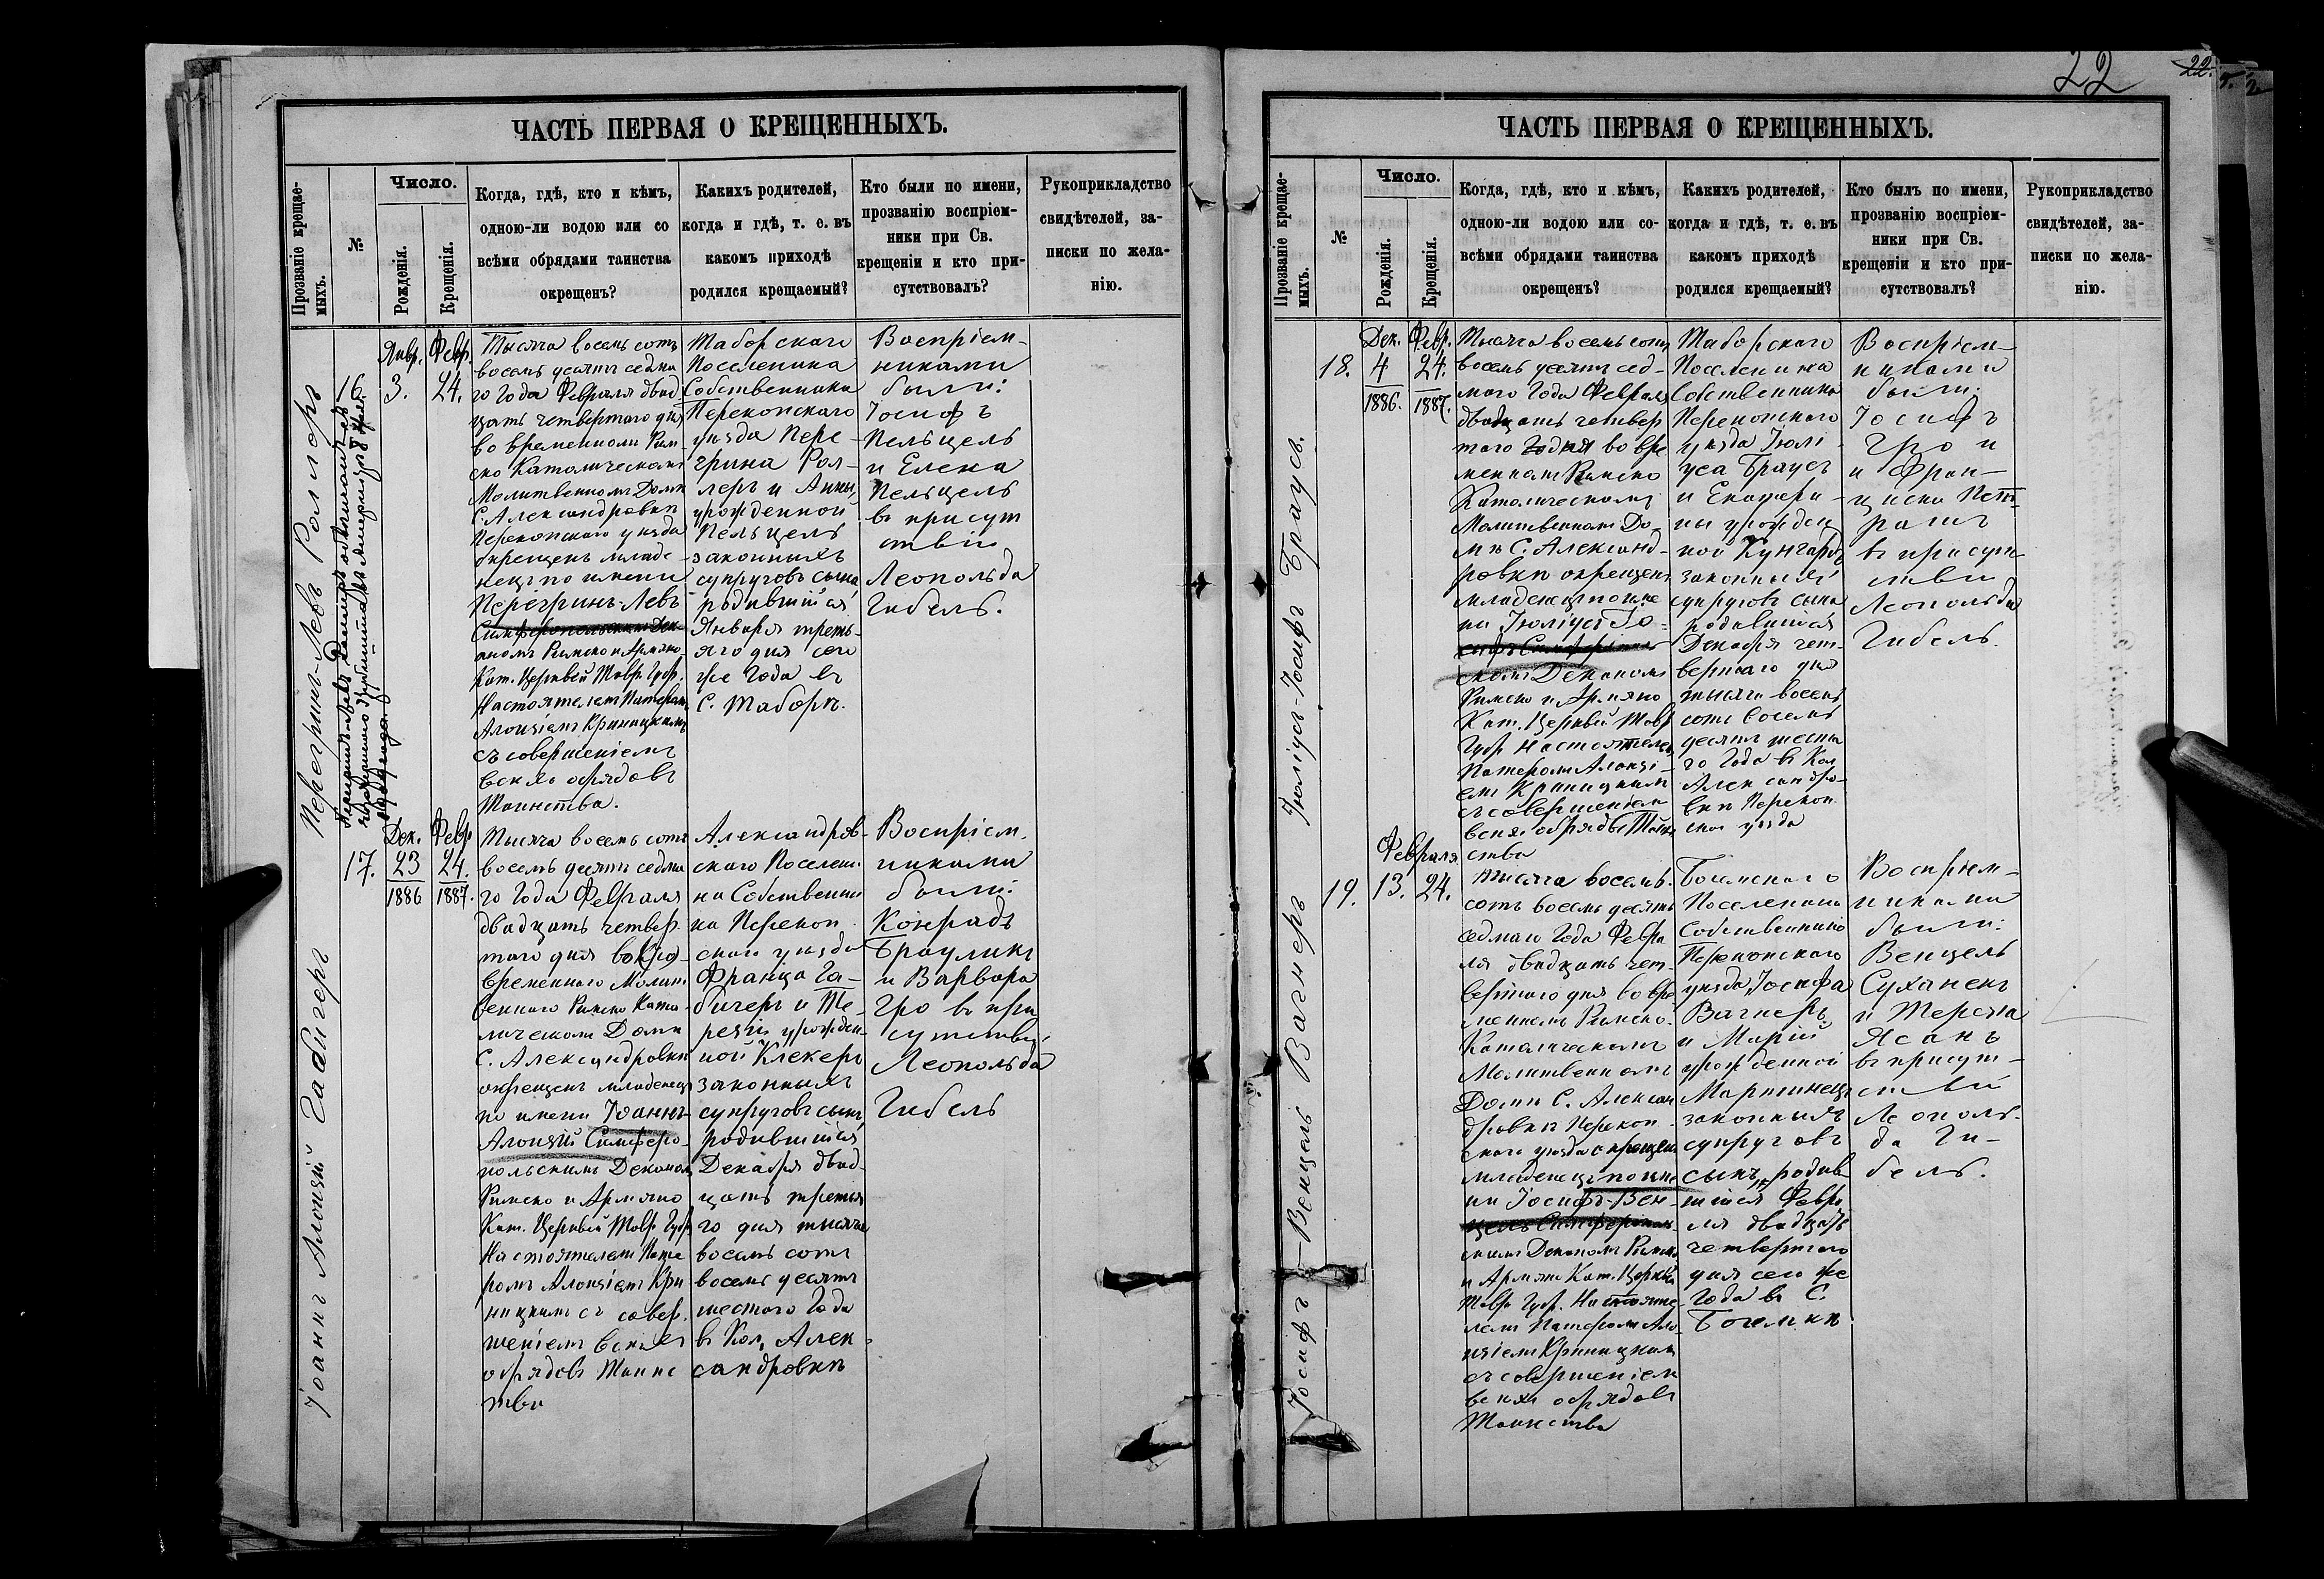 22
22.
ЧАСТЬ ПЕРВАЯ О КРЕЩЕННЫХЪ.
Прозваніе крещае-
мыхъ.
№
Число.
Рожденія.
Крещенія.
Когда, гдѣ, кто и кѣмъ,
одною-ли водою или со
всѣми обрядами таинства
окрещенъ?
Какихъ родителей,
когда и гдѣ, т. е. въ
какомъ приходѣ
родился крещаемый?
Кто были по имени,
прозванію воспріем-
ники при Св.
крещеніи и кто при-
сутствовалъ?
Рукоприкладство
свидѣтелей, за-
писки по жела-
нію.
Перегринъ-Левъ Роллеръ
16
Янв.
3.
Февр.
24.
Тысяча восемь сотъ
восемь десятъ седма
го Года Февраля двад
цать четвертого дня
во временном Рим
ско Католическомъ
Молитвенномъ Домѣ
С. Александровки
Перекопского уѣзда
окрещенъ младе
нецъ по имени
Перегринъ-Левъ
Симферопольскимъ Дек-
аномъ Римско и Армяно
Кат. Церквей Тавр. Губр.
Настоятелемъ Патеромъ
Алоизіемъ Криницкимъ
съ совершеніемъ
всѣхъ обрядовъ
Таинства.
Таборского
Поселенина
Собственника
Перекопского
уѣзда Пере-
грина Рол-
леръ и Анны,
урожденной
Пельцель
законныхъ
супруговъ сына,
родившійся
Января треть-
яго дня сего
же Года въ
С. Таборѣ.
Воспріем-
никами
были:
Іосифъ
Пельцель
и Елена
Пельцель
въ присут
ствіи
Леопольда
Гибель.
Іоаннъ Алоизій Габигеръ
17.
Дек.
23
1886
Февр
24.
1887.
Тысяча восемь сотъ
восемь десятъ седма
го Года Февраля
двадцать четвер
того дня во
временного Молит
венного Римско Като-
лическомъ Домѣ
С. Александровки
окрещенъ младенецъ
по имени Іоаннъ-
Алоизій Симферо-
польскимъ Деканомъ
Римско и Армяно
Кат. Церквей Тавр. Губр
Настоятелемъ Пате
ромъ Алоизіемъ Кри
ницкимъ съ совер.
шеніемъ всѣхъ
обрядовъ Таинс
тва
Александров-
ского Поселени
на Собственни
ка Перекоп
ского уѣзда
Франца Га-
бигеръ и Те-
резіи урожден
ной Клекеръ
законныхъ
супруговъ сынъ,
родившійся
Декабря двад-
цать третья
го дня тысяча
восемь сотъ
восемь десятъ
шестого Года
въ Кол. Алек-
сандровкѣ
Воспріем.
никами
были:
Конрадъ
Браулихъ
и Варвара
Гро въ при
сутствіи
Леопольда
Гибель
ЧАСТЬ ПЕРВАЯ О КРЕЩЕННЫХЪ.
Прозваніе крещае-
мыхъ.
№
Число.
Рожденія.
Крещенія.
Когда, гдѣ, кто и кѣмъ,
одною-ли водою или со-
всѣми обрядами таинства
окрещенъ?
Какихъ родителей,
когда и гдѣ, т. е. въ
какомъ приходѣ
родился крещаемый?
Кто былъ по имени,
прозванію воспріем-
ники при Св.
крещеніи и кто при-
сутствовалъ?
Рукоприкладство
свидѣтелей, за-
писки по жела-
нію.
Іюліусъ-Іосифъ Браусъ.
18.
Дек.
4
1886.
Февр.
24.
1887.
Тысяча восемь сотъ
восемь десятъ сед-
мого Года Февраля
двадцать четвер
того дня во вре
менном Римско
Католическомъ
Молитвенномъ До-
мѣ С. Александ-
ровки окрещенъ
младенецъ по име
ни Іюліусъ Іо-
сифъ Симферополь
скимъ Деканомъ
Римско и Армяно
Кат. Церквей Тавр
Губр Настоятелемъ
Патеромъ Алоизі-
емъ Криницкимъ
съ совершеніемъ
всѣхъ обрядовъ Таин
ства
Таборского
Поселенина
Собственника
Перекопского
уѣзда Іюлі-
уса Браусъ
и Екатери-
ны урожден
ной Кунгардъ
законныхъ
супруговъ сына
родившійся
Декабря чет-
вертого дня
тысяча восемь
сотъ восемь
десятъ шеста
го Года въ Кол
Александро-
вкѣ Перекоп
ского уѣзда
Воспріем-
никами
были:
Іосифъ
Гро и
и Фран-
циска Пет-
рашъ
въ присут-
ствіи
Леопольда
Гибель.
Іосифъ-Венцель Вагнеръ
19.
Февраля
13.
24.
тысяча восемь.
сотъ восемь десятъ
седмаго Года Февра
ля двадцать чет-
вертого дня во вре-
менномъ Римско-
Католическомъ
Молитвенномъ
Домѣ С. Алексан
дровки Перекоп-
ского уѣзда окрещенъ
младенецъ по име
ни Іосифъ-Вен-
цель Симферополь
скимъ Деканомъ Римско
и Армяно Кат. Церквей
Тавр. Губр. Настояте
лемъ Патеромъ Ало-
изіемъ Криницкимъ
съ совершеніемъ
всѣхъ обрядовъ
Таинства
Богемского
Поселенина
Собственника
Перекопского
уѣзда, Іосифа
Вагнеръ
и Маріи
урожденной
Мартинецъ
законныхъ
супруговъ
сынъ, родив-
шійся Февра
ля двадцать
четвертого
дня сего же
Года въ С.
Богемкѣ
Воспріем-
никами
были:
Венцель
Суханекъ
и Терезія
Ясанъ
въ присут-
ствіи
Леополь-
да Ги-
бель.